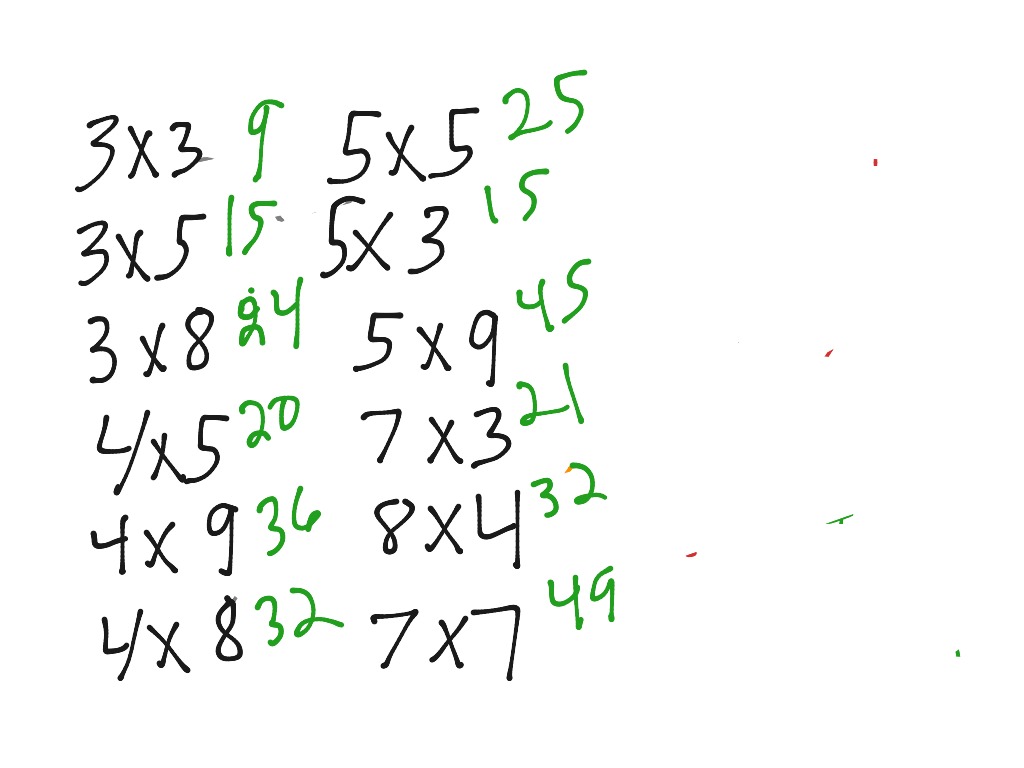 3x3 9 5x5 25
3x5 15 5x3 15
3x8 24 5x9 45
4x5 20 7x3 21
4x9 36 8x4 32
4x8 32 7x7 49